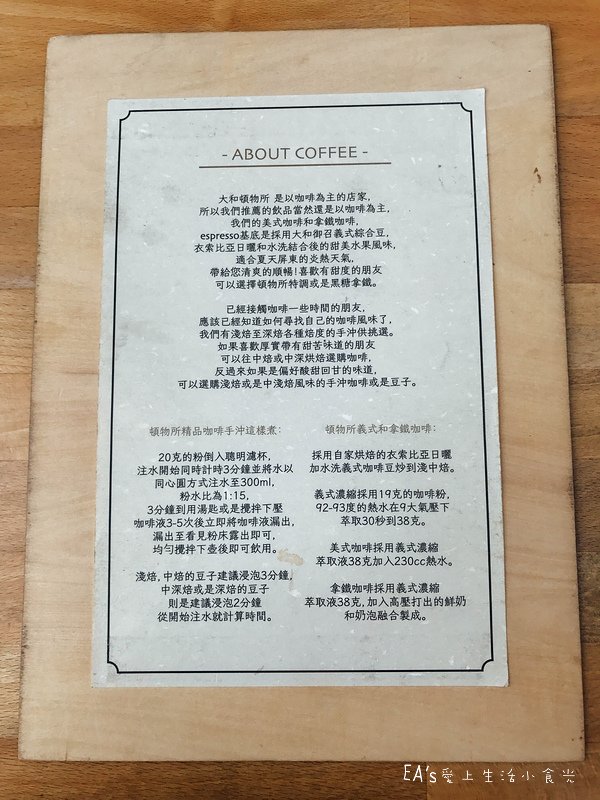 - ABOUT COFFEE -
大和頓物所 是以咖啡為主的店家,
所以我們推薦的飲品當然還是以咖啡為主,
我們的美式咖啡和拿鐵咖啡,
espresso基底是採用大和御召義式綜合豆,
衣索比亞日曬和水洗結合後的甜美水果風味,
適合夏天屏東的炎熱天氣,
帶給您清爽的順暢!喜歡有甜度的朋友
可以選擇頓物所特調或是黑糖拿鐵。
已經接觸咖啡一些時間的朋友,
應該已經知道如何尋找自己的咖啡風味了,
我們有淺焙至深焙各種焙度的手沖供挑選。
如果喜歡厚實帶有甜苦味道的朋友
可以往中焙或中深烘焙選購咖啡,
反過來如果是偏好酸甜回甘的味道,
可以選購淺焙或是中淺焙風味的手沖咖啡或是豆子。
頓物所精品咖啡手沖這樣煮:
20克的粉倒入聰明濾杯,
注水開始同時計時3分鐘並將水以
同心圓方式注水至300ml,
粉水比為1:15,
3分鐘到用湯匙或是攪拌下壓
咖啡液3-5次後立即將咖啡液漏出,
漏出至看見粉床露出即可,
均勻攪拌下壺後即可飲用。
淺焙,中焙的豆子建議浸泡3分鐘,
中深焙或是深焙的豆子
則是建議浸泡2分鐘
從開始注水就計算時間。
頓物所義式和拿鐵咖啡:
採用自家烘焙的衣索比亞日曬
加水洗義式咖啡豆炒到淺中焙。
義式濃縮採用19克的咖啡粉,
92-93度的熱水在9大氣壓下
萃取30秒到38克。
美式咖啡採用義式濃縮
萃取液38克加入230cc熱水。
拿鐵咖啡採用義式濃縮
萃取液38克,加入高壓打出的鮮奶
和奶泡融合製成。
EA's愛上生活小食光